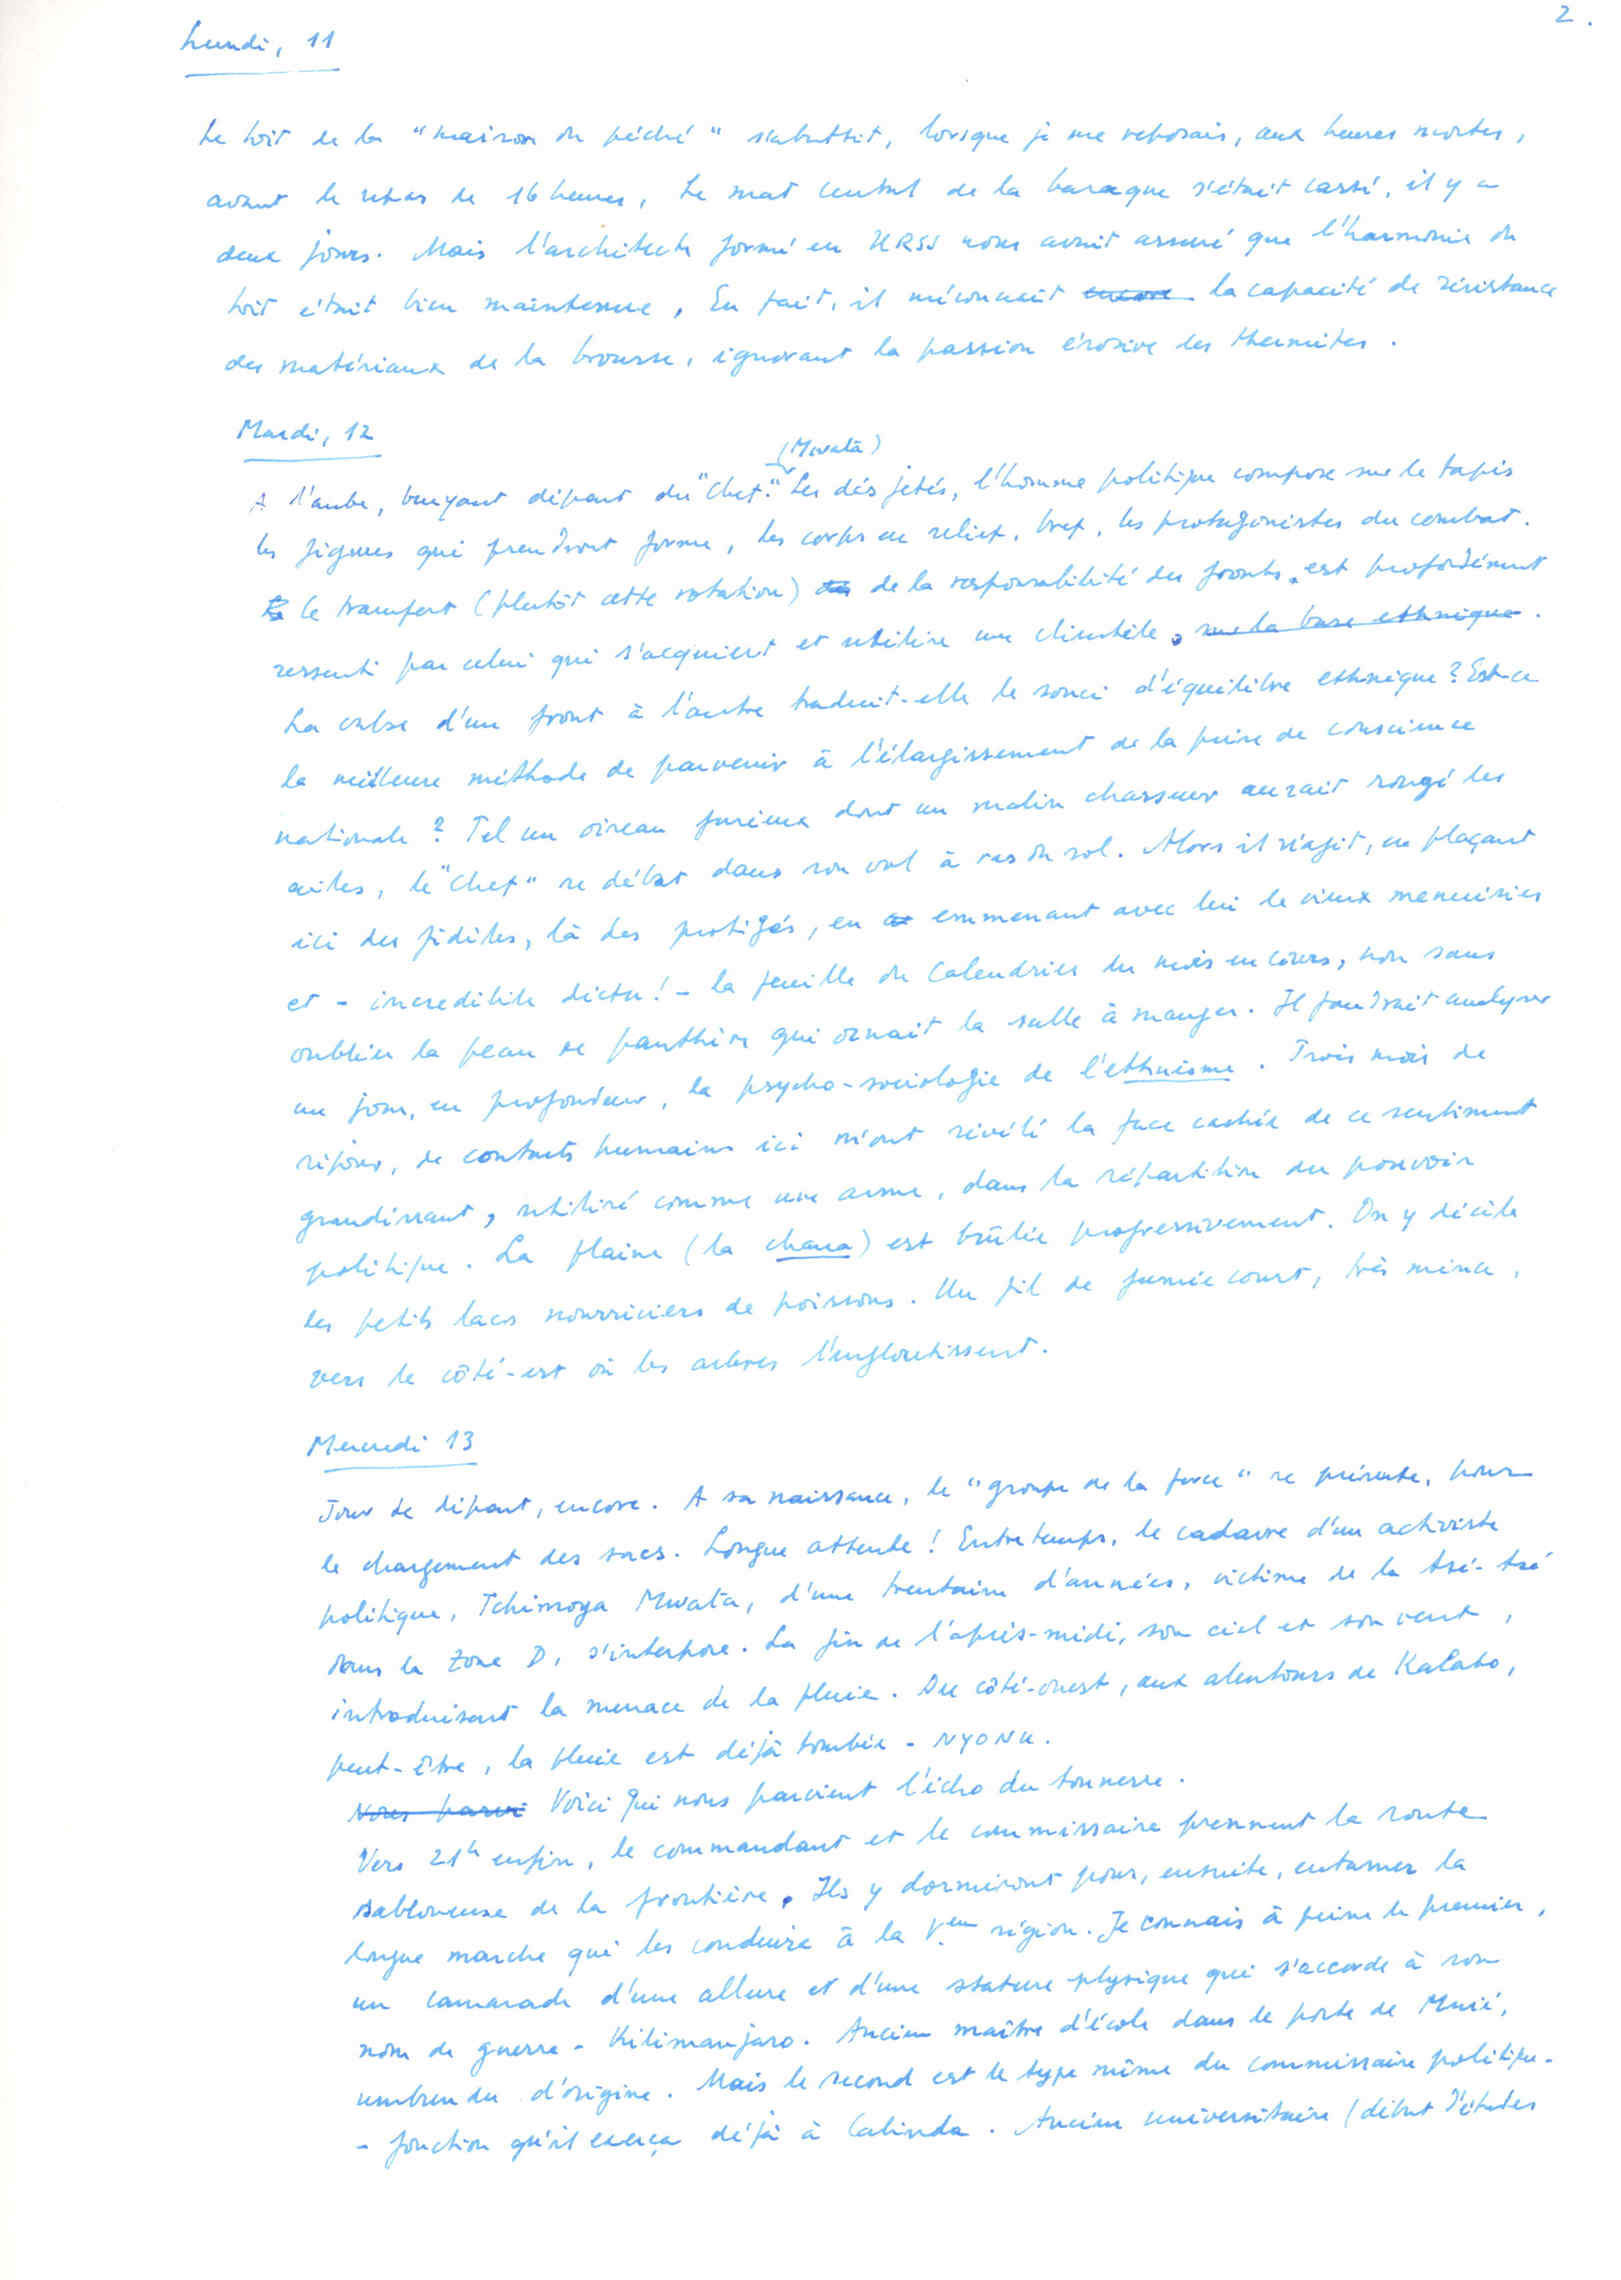 2.
Lundi, 11
Le toit de la "maison du péché" s'abattit, lorsque je me reposais, aux heures mortes,
avant le repas de 16 heures, Le mat central de la baraque s'était cassé, il y a
deux jours. Mais l'architecte formé en URSS nous avait assuré que l'harmonie du
toit était bien maintenue, En fait, il méconnait encore la capacité de résistance
des matériaux de la brousse, ignorant la passion érosive des thermites.
Mardi, 12
(Mwatá)
A l'aube, bruyant départ du "Chef." Les dés jetés, l'homme politique compose sur le tapis
les figures qui prendront forme, les corps en relief, bref, les protagonistes du combat.
le transfert (plutôt cette rotation) de la responsabilité des fronts, est profondément
ressenti par celui qui s'acquiert et utilise une clientèle, sur la base ethnique.
La valse d'un front à l'autre traduit-elle le souci d'équilibre ethnique? Est-ce
la meilleure méthode de parvenir à l'élargissement de la prise de conscience
nationale? Tel un oiseau furieux dont un malin chasseur aurait rongé les
ailes, le "Chef" se débat dans son vol à ras du sol. Alors il réagit, en plaçant
ici des fidèles, là des protégés, en emmenant avec lui le vieux menuisier
et - incredibile dictu! - la feuille du Calendrier du mois en cours, non sans
oublier la peau de panthère qui ornait la salle à manger. Il faudrait analyser
un jour, en profondeur, la psycho-sociologie de l'ethnisme. Trois mois de
séjour, de contacts humains ici m'ont révélé la face cachée de ce sentiment
grandissant, utilisé comme une arme, dans la répartition du pouvoir
politique. La plaine (la chana) est brûlée progressivement. On y décèle
les petits lacs nourriciers de poissons. Un fil de fumée court, très mince,
vers le côté-est où les arbres l'engloutissent.
Mercredi 13
Jour de départ, encore. A sa naissance, le "groupe de la force" se présente, pour
le chargement des sacs. Longue attente! Entretemps, le cadavre d'un activiste
politique, Tchimoya Mwata, d'une trentaine d'années, victime de la tsé-tsé
dans la Zone D, s'interpose. La fin de l'après-midi, son ciel et son vent,
introduisent la menace de la pluie. Du côté-ouest, aux alentours de Kalabo,
peut-être, la pluie est déjà tombée - NYONU.
Nous parvi Voici qui nous parvient l'écho du tonnerre.
Vers 21h enfin, le commandant et le commissaire prennent la route
sabloneuse de la frontière. Ils y dormiront pour, ensuite, entamer la
longue marche qui les conduira à la Vem région. Je connais à peine le premier,
un camarade d'une allure et d'une stature physique qui s'accorde à son
nom de guerre - Kilimanjaro. Ancien maître d'école dans le poste de Muié,
umbundu d'origine. Mais le second est le type même du commissaire politique -
- fonction qu'il exerça déjà à Cabinda. Ancien universitaire (début d'études